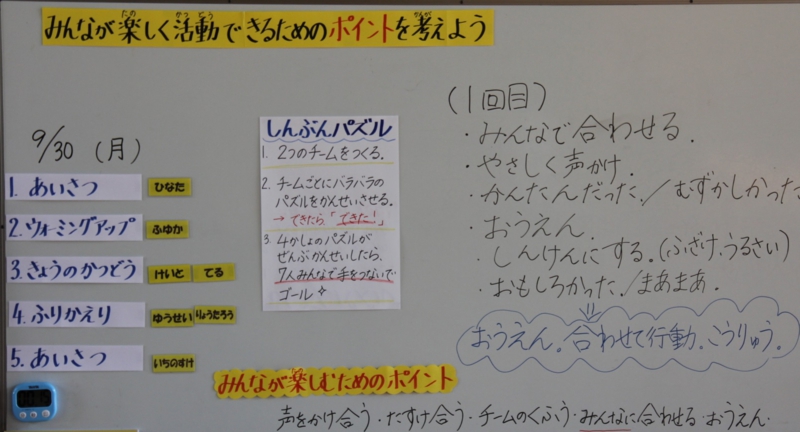 みんなが楽しく活動できるためのポイントを考えよう
9/30 (月)
1. あいさつ ひなた
2. ウォーミングアップ ふゆか
3. きょうのかつどう けいと てる
4. ふりかえり ゆうせい りょうたろう
5. あいさつ いちのすけ
しんぶんパズル
1. 2つのチームをつくる.
2. チームごとにバラバラの
パズルをかんせいさせる.
→ できたら、「できた!」
3. 4かしょのパズルが
ぜんぶかんせいしたら、
7人みんなで手をつないで
ゴール
(1回目)
・みんなで合わせる.
・やさしく声かけ.
・かんたんだった./むずかしかった
・おうえん.
・しんけんにする.(ふざけ、うるさい)
・おもしろかった./まあまあ.
おうえん。合わせて行動、こうりゅう。
みんなが楽しむためのポイント
声をかけ合う・たすけ合う・チームのくふう・みんなに合わせる・おうえん・